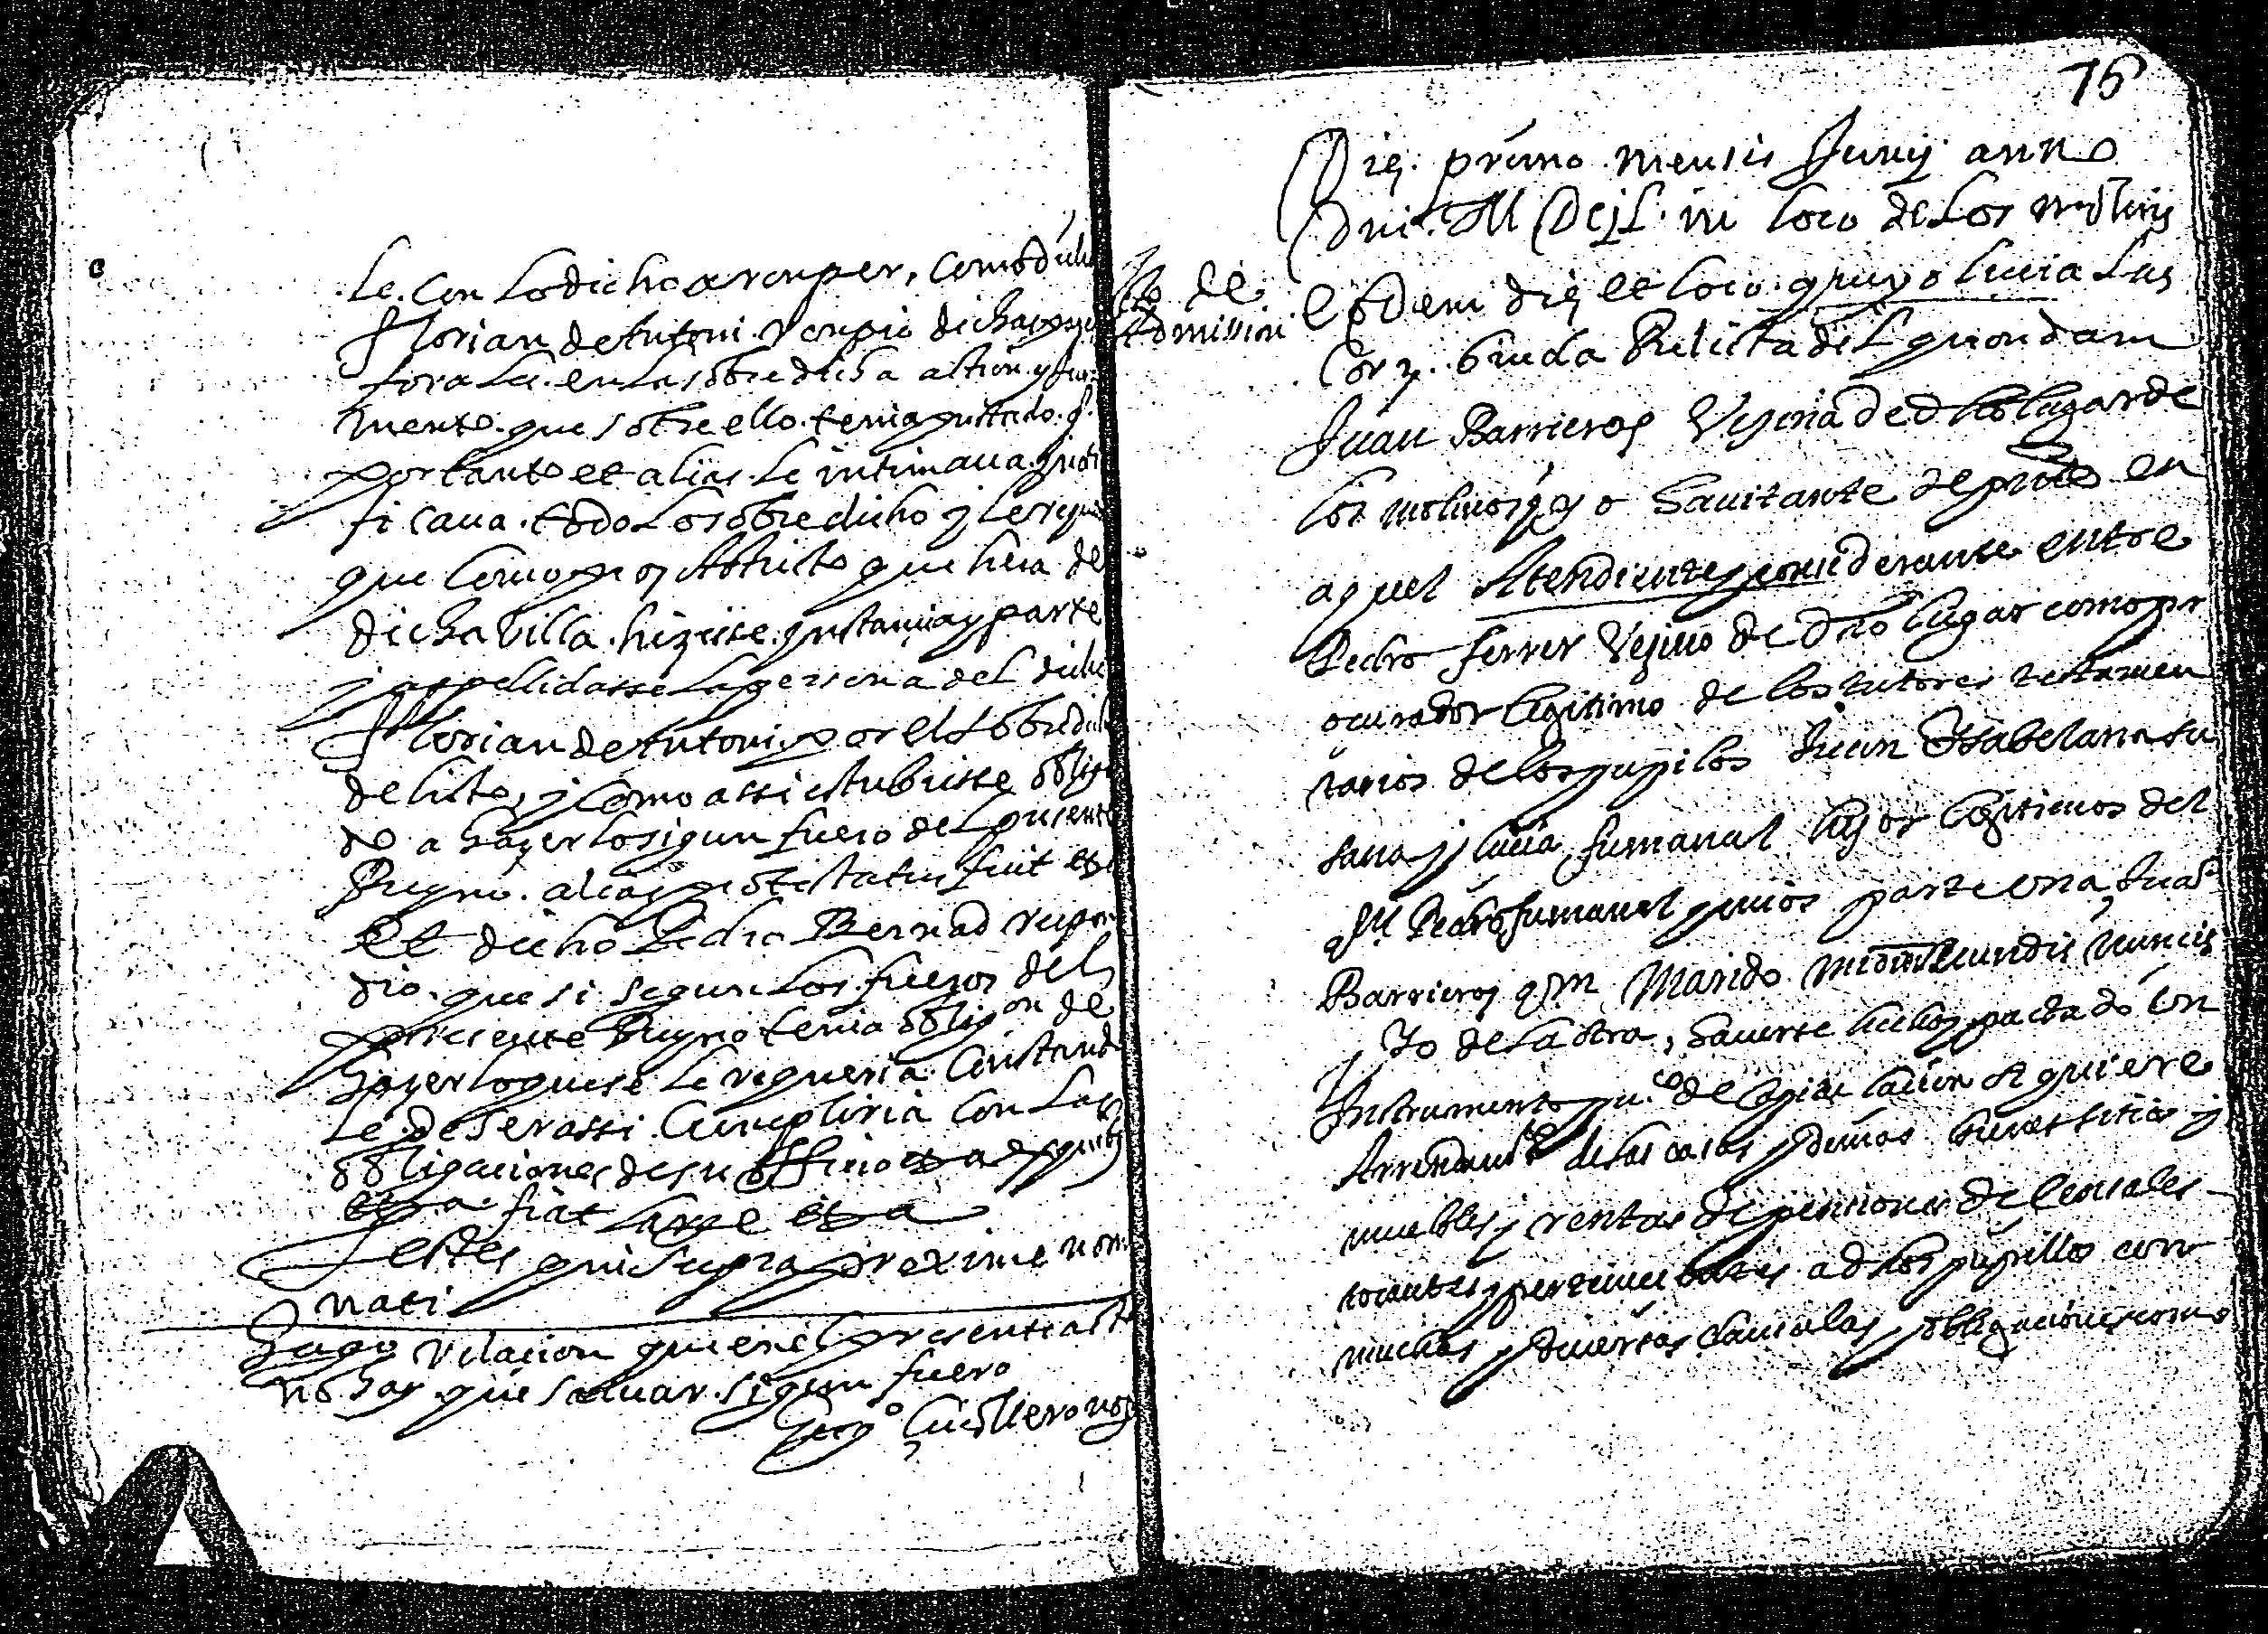 le. con lo dicho a romper, como dicho
Florian de Antoni. rompio dicha
foral. en la sobredicha action y
mento. que sobre ello. tenia prestado. q.
por tanto et alias. le intimaua. y noti
ficaua. todo lo sobredicho y le requi
que como que hera de
dicha Villa. hiziese. instancia y parte
y appellidasse la persona del dicho
Florian de Antoni, por el sobredicho
delicto, y como assi estubiesse obliga
do a hazerlo sigun fuero del presente
Reyno.
Et dicho Pedro Bernad respon
dio. que si segun los fueros del
presente Reyno tenia obligon de
hazer lo que se le requeria. Constando
le. de ser assi. Cumpliria con las
obligaciones de su officio
fiat large
Testes qui supra proxime nomi
nati
Hago relacion que en el presente acto
no hay que saluar. sigun fuero
Cuellero not
76
Die. primo. mensis Junij. anno
Dni. M in loco de Los molinos
de
Admission
Eodem die et loco. que yo lucia Las
biuda Relicta del quondam
Juan Barrieros Vezina de dho lugar de
los molinos y o hauitante de pnte en
aquel Atendiente y considerante entre
Pedro ferrer Vezino de dho lugar como pr
ocurador legitimo de los tutores testamen
tarios de los pupilos Juan Isabel ana su
sana y lucia fumanal hijos legitimos del
qm Pedro fumanal quios parte una, Juan
Barrieros qm Marido mio
y yo de la otra, hauerse hecho y pactado un
Instrumento pu.co de
Arrendamto de las casas y demas bienes sitios y
muebles y rentas de pensiones de censales
tocantes y pertenecientes a dhos pupillos con
muchas y diuersas clausulas y obligaciones como